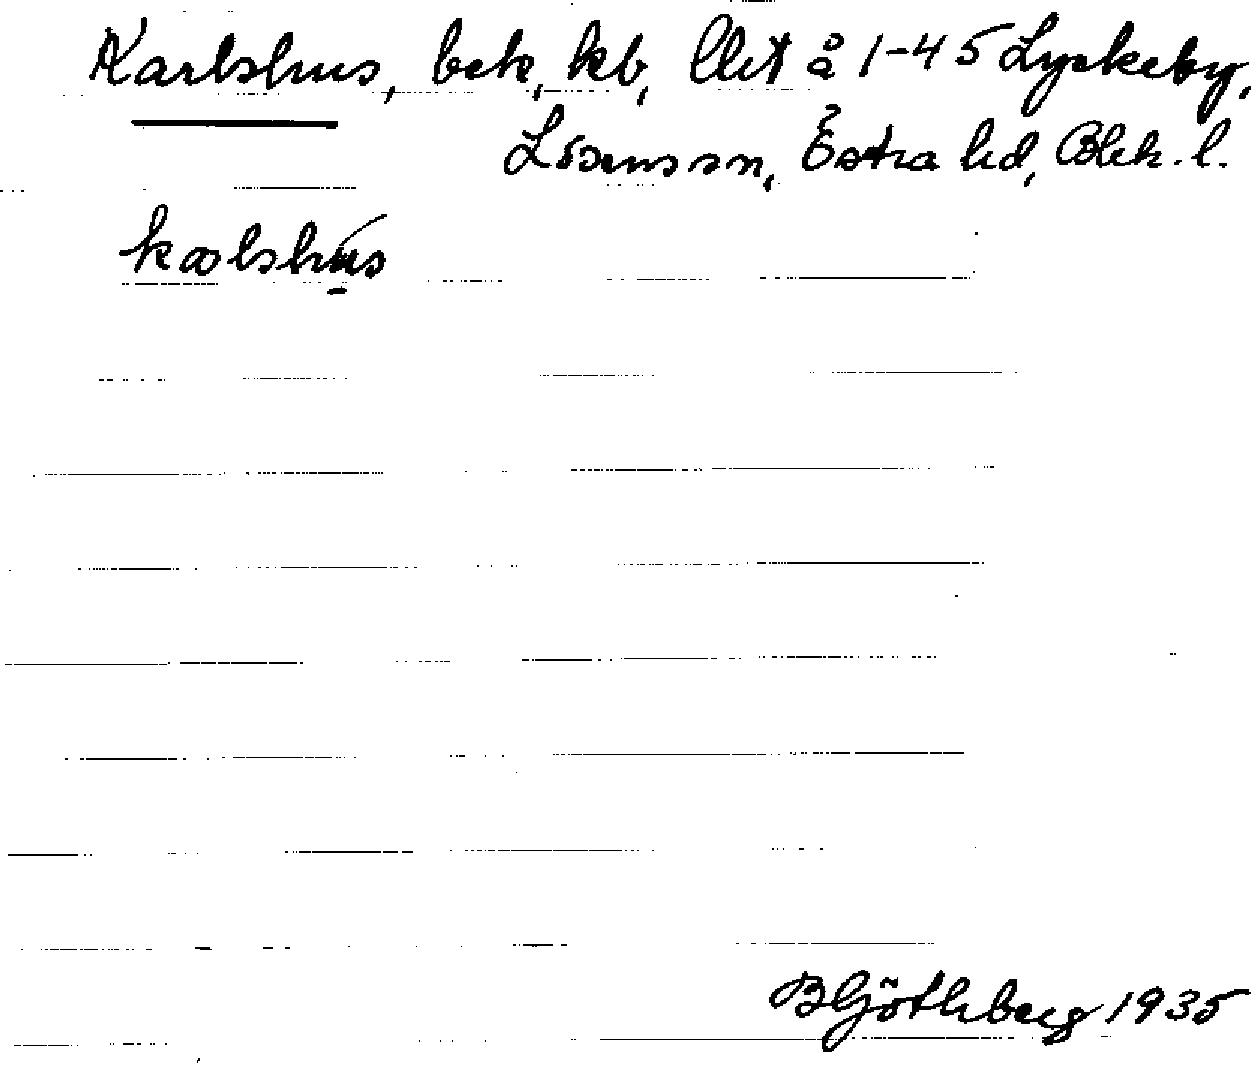 Karlshus, bek, kb, Utet å 1-45 Lyckeby,
Lösens sn, Östra hd, Blek. l.
kalshús
B Göthberg 1935